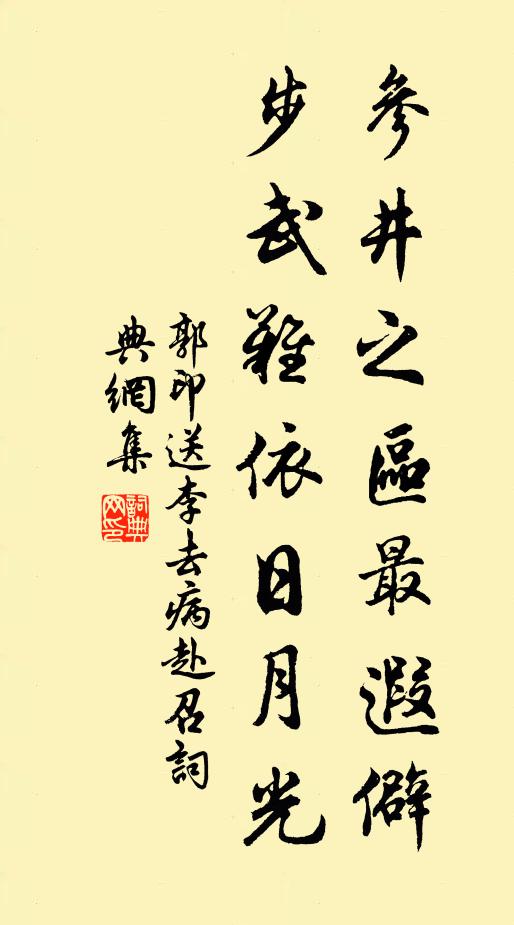 參井之區最遐僻
步武難依日月光
郭印送李去病赴召詞
典網集
詞典
网印